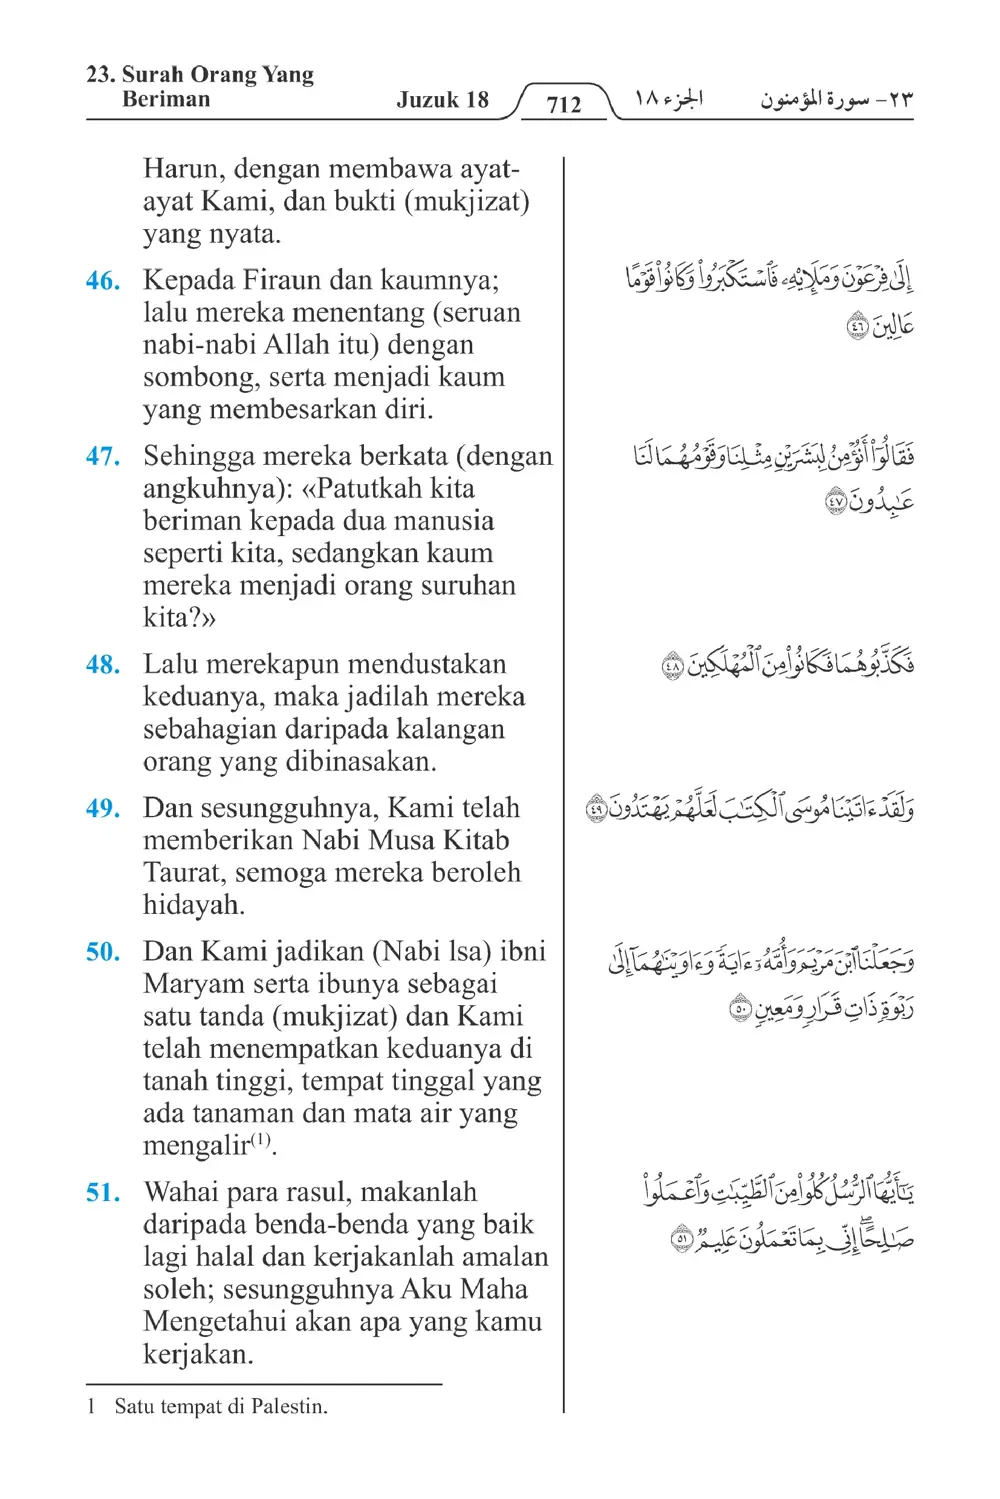 23. Surah Orang Yang
Beriman
Juzuk 18
712
الجزء ١٨
٢٣- سورة المؤمنون
Harun, dengan membawa ayat-
ayat Kami, dan bukti (mukjizat)
yang nyata.
46. Kepada Firaun dan kaumnya;
lalu mereka menentang (seruan
nabi-nabi Allah itu) dengan
sombong, serta menjadi kaum
yang membesarkan diri.
47. Sehingga mereka berkata (dengan
angkuhnya): «Patutkah kita
beriman kepada dua manusia
seperti kita, sedangkan kaum
mereka menjadi orang suruhan
kita?»
48. Lalu merekapun mendustakan
keduanya, maka jadilah mereka
sebahagian daripada kalangan
orang yang dibinasakan.
49. Dan sesungguhnya, Kami telah
memberikan Nabi Musa Kitab
Taurat, semoga mereka beroleh
hidayah.
50. Dan Kami jadikan (Nabi lsa) ibni
Maryam serta ibunya sebagai
satu tanda (mukjizat) dan Kami
telah menempatkan keduanya di
tanah tinggi, tempat tinggal yang
ada tanaman dan mata air yang
mengalir⁽¹⁾.
51. Wahai para rasul, makanlah
daripada benda-benda yang baik
lagi halal dan kerjakanlah amalan
soleh; sesungguhnya Aku Maha
Mengetahui akan apa yang kamu
kerjakan.
1 Satu tempat di Palestin.
إِلَىٰ فِرْعَوْنَ وَمَلَإِي۟هِۦ فَٱسْتَكْبَرُوا۟ وَكَانُوا۟ قَوْمًا
عَالِينَ ٤٦
فَقَالُوٓا۟ أَنُؤْمِنُ لِبَشَرَيْنِ مِثْلِنَا وَقَوْمُهُمَا لَنَا
عَـٰبِدُونَ ٤٧
فَكَذَّبُوهُمَا فَكَانُوا۟ مِنَ ٱلْمُهْلَكِينَ ٤٨
وَلَقَدْ ءَاتَيْنَا مُوسَى ٱلْكِتَـٰبَ لَعَلَّهُمْ يَهْتَدُونَ ٤٩
وَجَعَلْنَا ٱبْنَ مَرْيَمَ وَأُمَّهُۥٓ ءَايَةً وَءَاوَيْنَـٰهُمَآ إِلَىٰ
رَبْوَةٍ ذَاتِ قَرَارٍ وَمَعِينٍ ٥٠
يَـٰٓأَيُّهَا ٱلرُّسُلُ كُلُوا۟ مِنَ ٱلطَّيِّبَـٰتِ وَٱعْمَلُوا۟
صَـٰلِحًا ۖ إِنِّى بِمَا تَعْمَلُونَ عَلِيمٌ ٥١